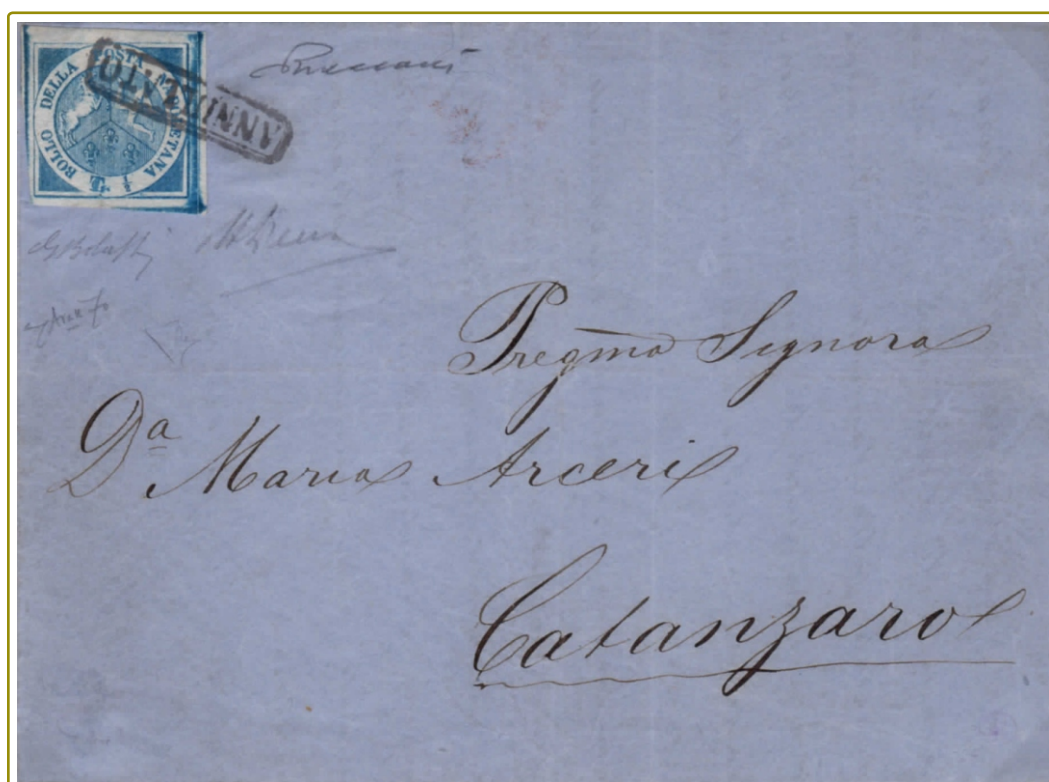 BOLLO DELLA POSTA NAPOLETANA
ANNULLATO
Pregma Signora
Da Maria Arceri
Catanzaro